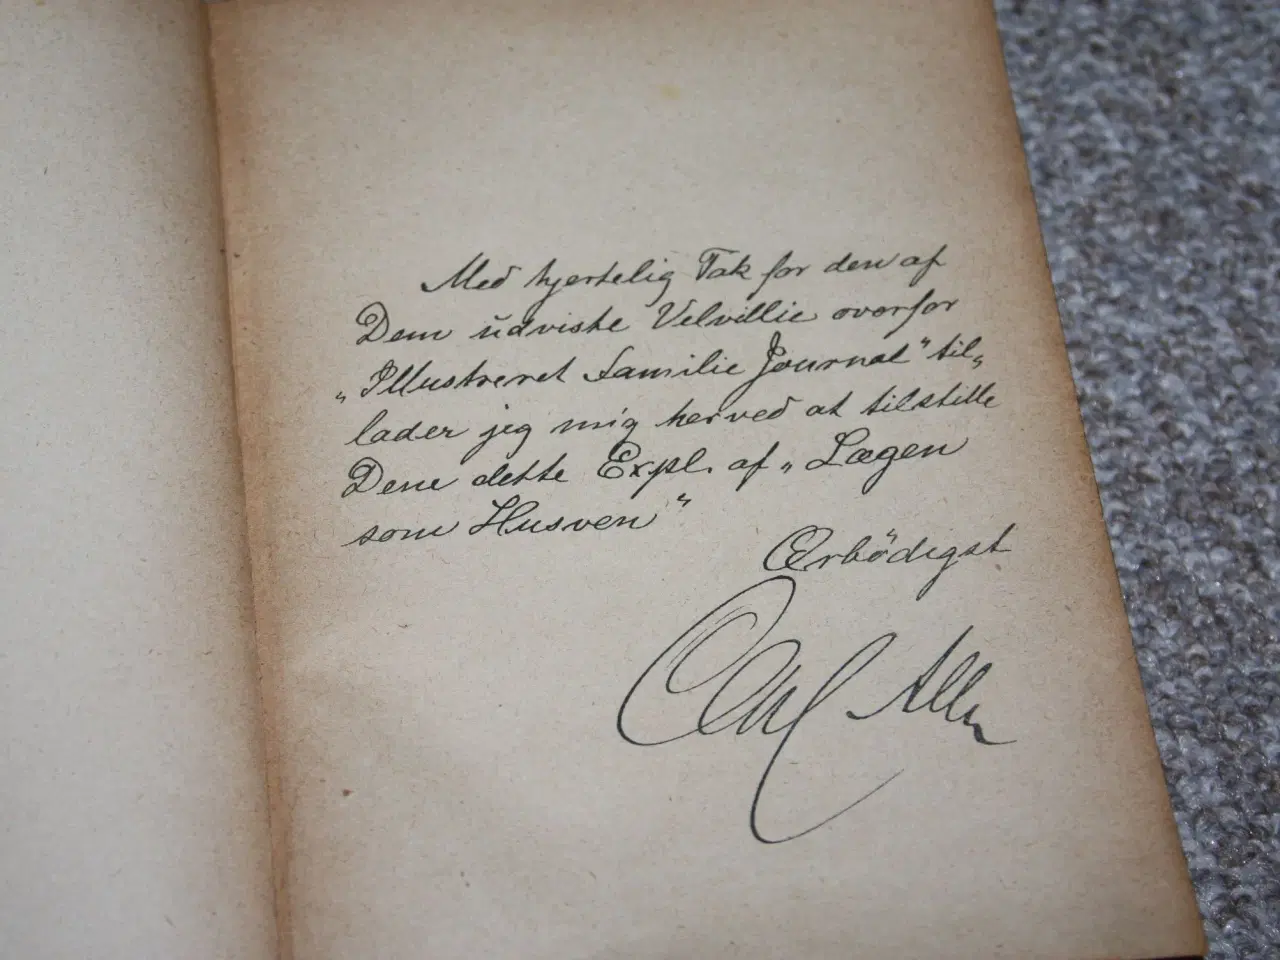 Med hjertelig Tak for den af
Dem udviste Velvillie overfor
„Illustreret Familie Journal" til„
lader jeg mig herved at tilstille
Dem dette Expl. af „Lægen
som Husven"
Ærbödigst
Carl Aller